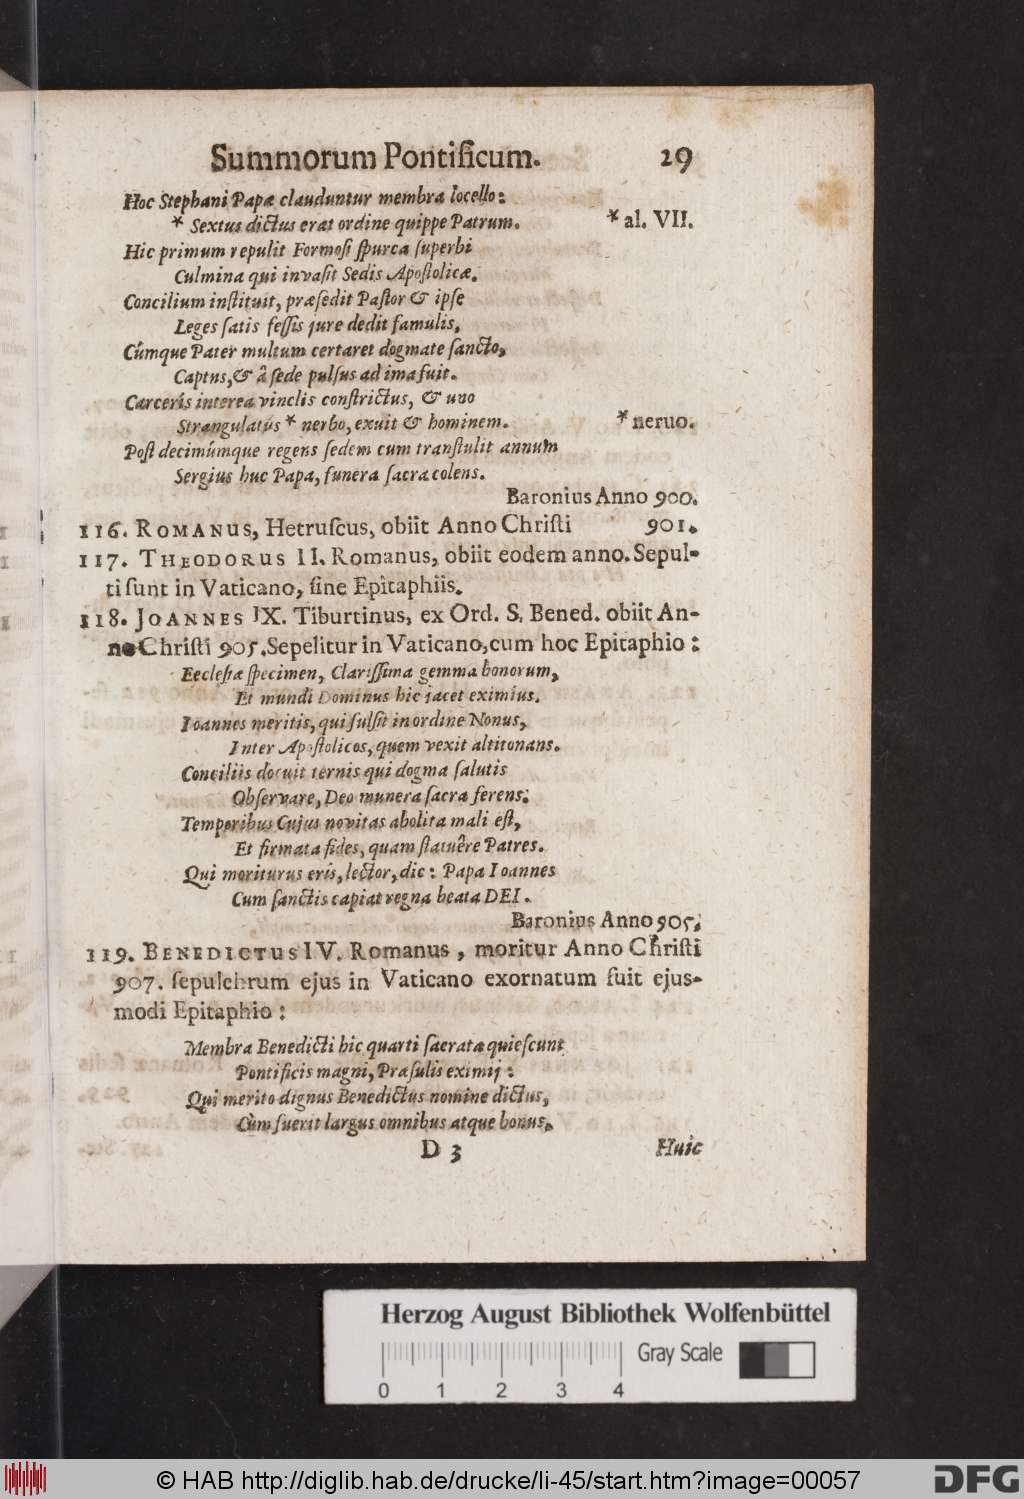 Summorum Pontificum. 29
Hoc Stephani Papæ clauduntur membra locello:
* Sextus dictus erat ordine quippe Patrum. * al. VII.
Hic primum repulit Formosi spurca superbi
Culmina qui invasit Sedis Apostolicæ.
Concilium instituit, præsedit Pastor & ipse
Leges satis fessis jure dedit famulis,
Cúmque Pater multum certaret dogmate sancto,
Captus, & â sede pulsus ad ima fuit.
Carceris interea vinclis constrictus, & uno
Strangulatus * nerbo, exuit & hominem. * neruo.
Post decimúmque regens sedem cum transtulit annum
Sergius huc Papa, funera sacra colens.
Baronius Anno 900.
116. ROMANUS, Hetruscus, obiit Anno Christi 901.
117. THEODORUS II. Romanus, obiit eodem anno. Sepul-
ti sunt in Vaticano, sine Epitaphiis.
118. JOANNES IX. Tiburtinus, ex Ord. S. Bened. obiit An-
no Christi 905. Sepelitur in Vaticano, cum hoc Epitaphio:
Ecclesiæ specimen, Clarissima gemma bonorum,
Et mundi Dominus hic jacet eximius.
Ioannes meritis, qui fulsit in ordine Nonus,
Inter Apostolicos, quem vexit altitonans.
Conciliis docuit ternis qui dogma salutis
Observare, Deo munera sacra ferens.
Temporibus Cujus novitas abolita mali est,
Et firmata fides, quam statuêre Patres.
Qui moriturus eris, lector, dic: Papa Ioannes
Cum sanctis capiat regna beata DEI.
Baronius Anno 905.
119. BENEDICTUS IV. Romanus, moritur Anno Christi
907. sepulchrum ejus in Vaticano exornatum fuit ejus-
modi Epitaphio:
Membra Benedicti hic quarti sacrata quiescunt
Pontificis magni, Præsulis eximij:
Qui merito dignus Benedictus nomine dictus,
Cùm fuerit largus omnibus atque bonus.
D 3 Huic
Herzog August Bibliothek Wolfenbüttel
Gray Scale
0 1 2 3 4
© HAB http://diglib.hab.de/drucke/li-45/start.htm?image=00057
DFG